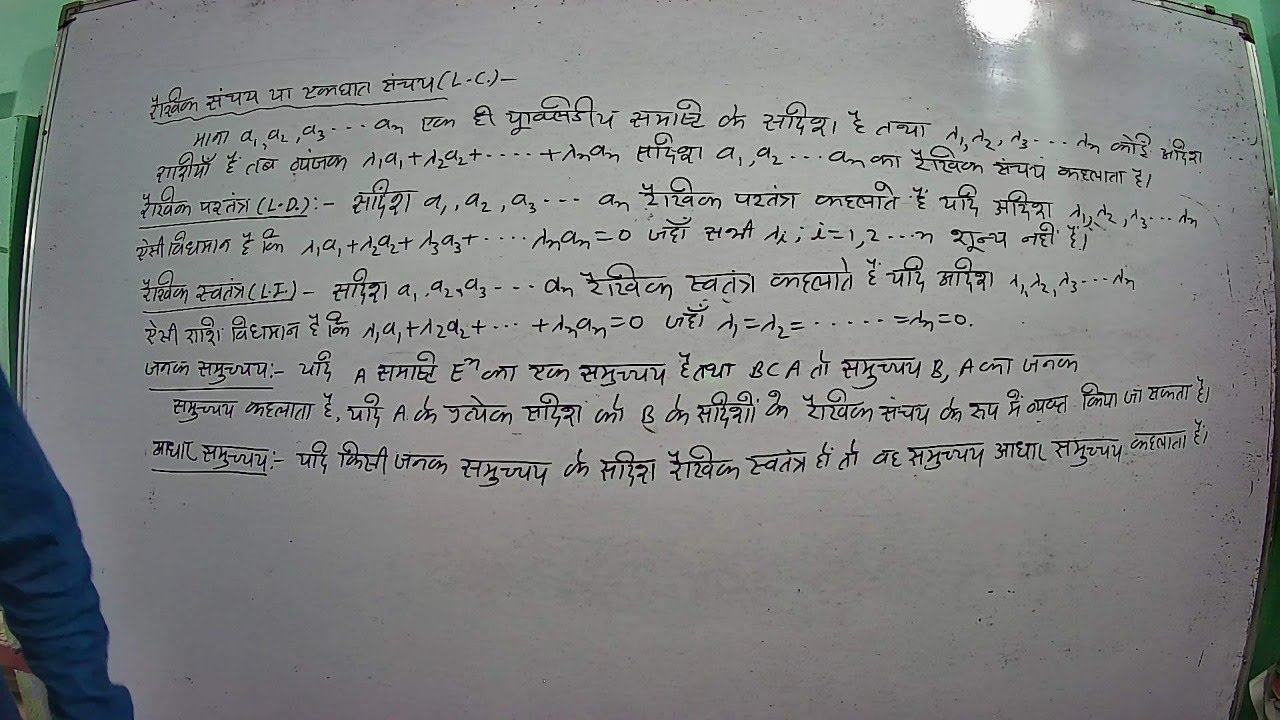 रैखिक संचय या एकघात संचय (L.C.) –
माना a₁, a₂, a₃ ... aₙ एक ही यूक्लिडीय समष्टि के सदिश है तथा λ₁, λ₂, λ₃ ... λₙ कोई अदिश
राशीयाँ है तब व्यंजक λ₁a₁ + λ₂a₂ + ..... + λₙaₙ सदिश a₁, a₂ ... aₙ का रैखिक संचय कहलाता है।
रैखिक परतंत्र (L.D.) :- सदिश a₁, a₂, a₃ ... aₙ रैखिक परतंत्र कहलाते हैं यदि अदिश λ₁, λ₂, λ₃ ... λₙ
ऐसी विधमान है कि λ₁a₁ + λ₂a₂ + λ₃a₃ + ..... λₙaₙ = 0 जहाँ सभी λᵢ ; i = 1, 2 ... n शून्य नहीं हैं।
रैखिक स्वतंत्र (L.I.) – सदिश a₁, a₂, a₃ ... aₙ रैखिक स्वतंत्र कहलाते हैं यदि अदिश λ₁, λ₂, λ₃ ... λₙ
ऐसी राशि विधमान है कि λ₁a₁ + λ₂a₂ + ... + λₙaₙ = 0 जहाँ λ₁ = λ₂ = ...... = λₙ = 0.
जनक समुच्चय :- यदि A समष्टि Eⁿ का एक समुच्चय है तथा B ⊂ A तो समुच्चय B, A का जनक
समुच्चय कहलाता है, यदि A के प्रत्येक सदिश को B के सदिशों के रैखिक संचय के रूप में व्यक्त किया जा सकता है।
आधार समुच्चय :- यदि किसी जनक समुच्चय के सदिश रैखिक स्वतंत्र हों तो वह समुच्चय आधार समुच्चय कहलाता है।